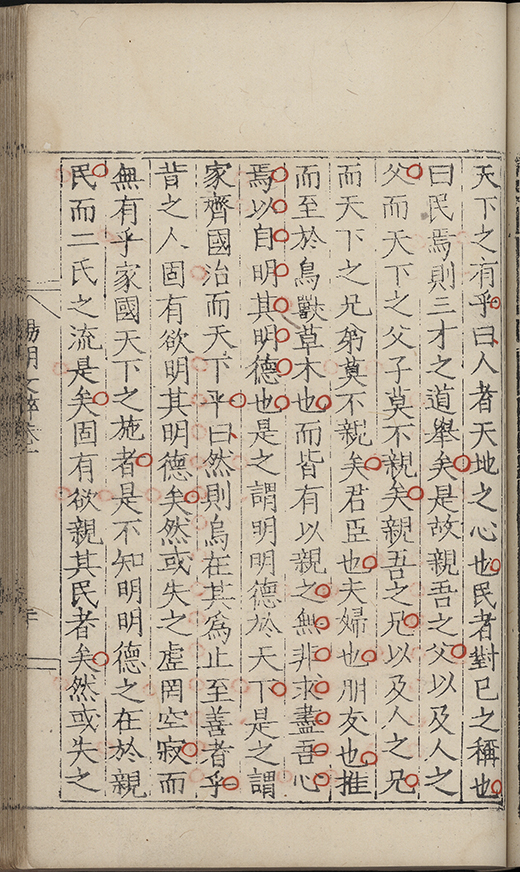 天下之有乎曰人者天地之心也民者對已之稱也
曰民焉則三才之道舉矣是故親吾之父以及人之
父而天下之父子莫不親矣親吾之兄以及人之兄
而天下之兄弟莫不親矣君臣也夫婦也朋友也推
而至於鳥獸草木也而皆有以親之無非求盡吾心
焉以自明其明德也是之謂明明德於天下是之謂
家齊國治而天下平曰然則烏在其為止至善者乎
昔之人固有欲明其明德矣然或失之虛罔空寂而
無有乎家國天下之施者是不知明明德之在於親
民而二氏之流是矣固有欲親其民者矣然或失之
陽明文粹卷一